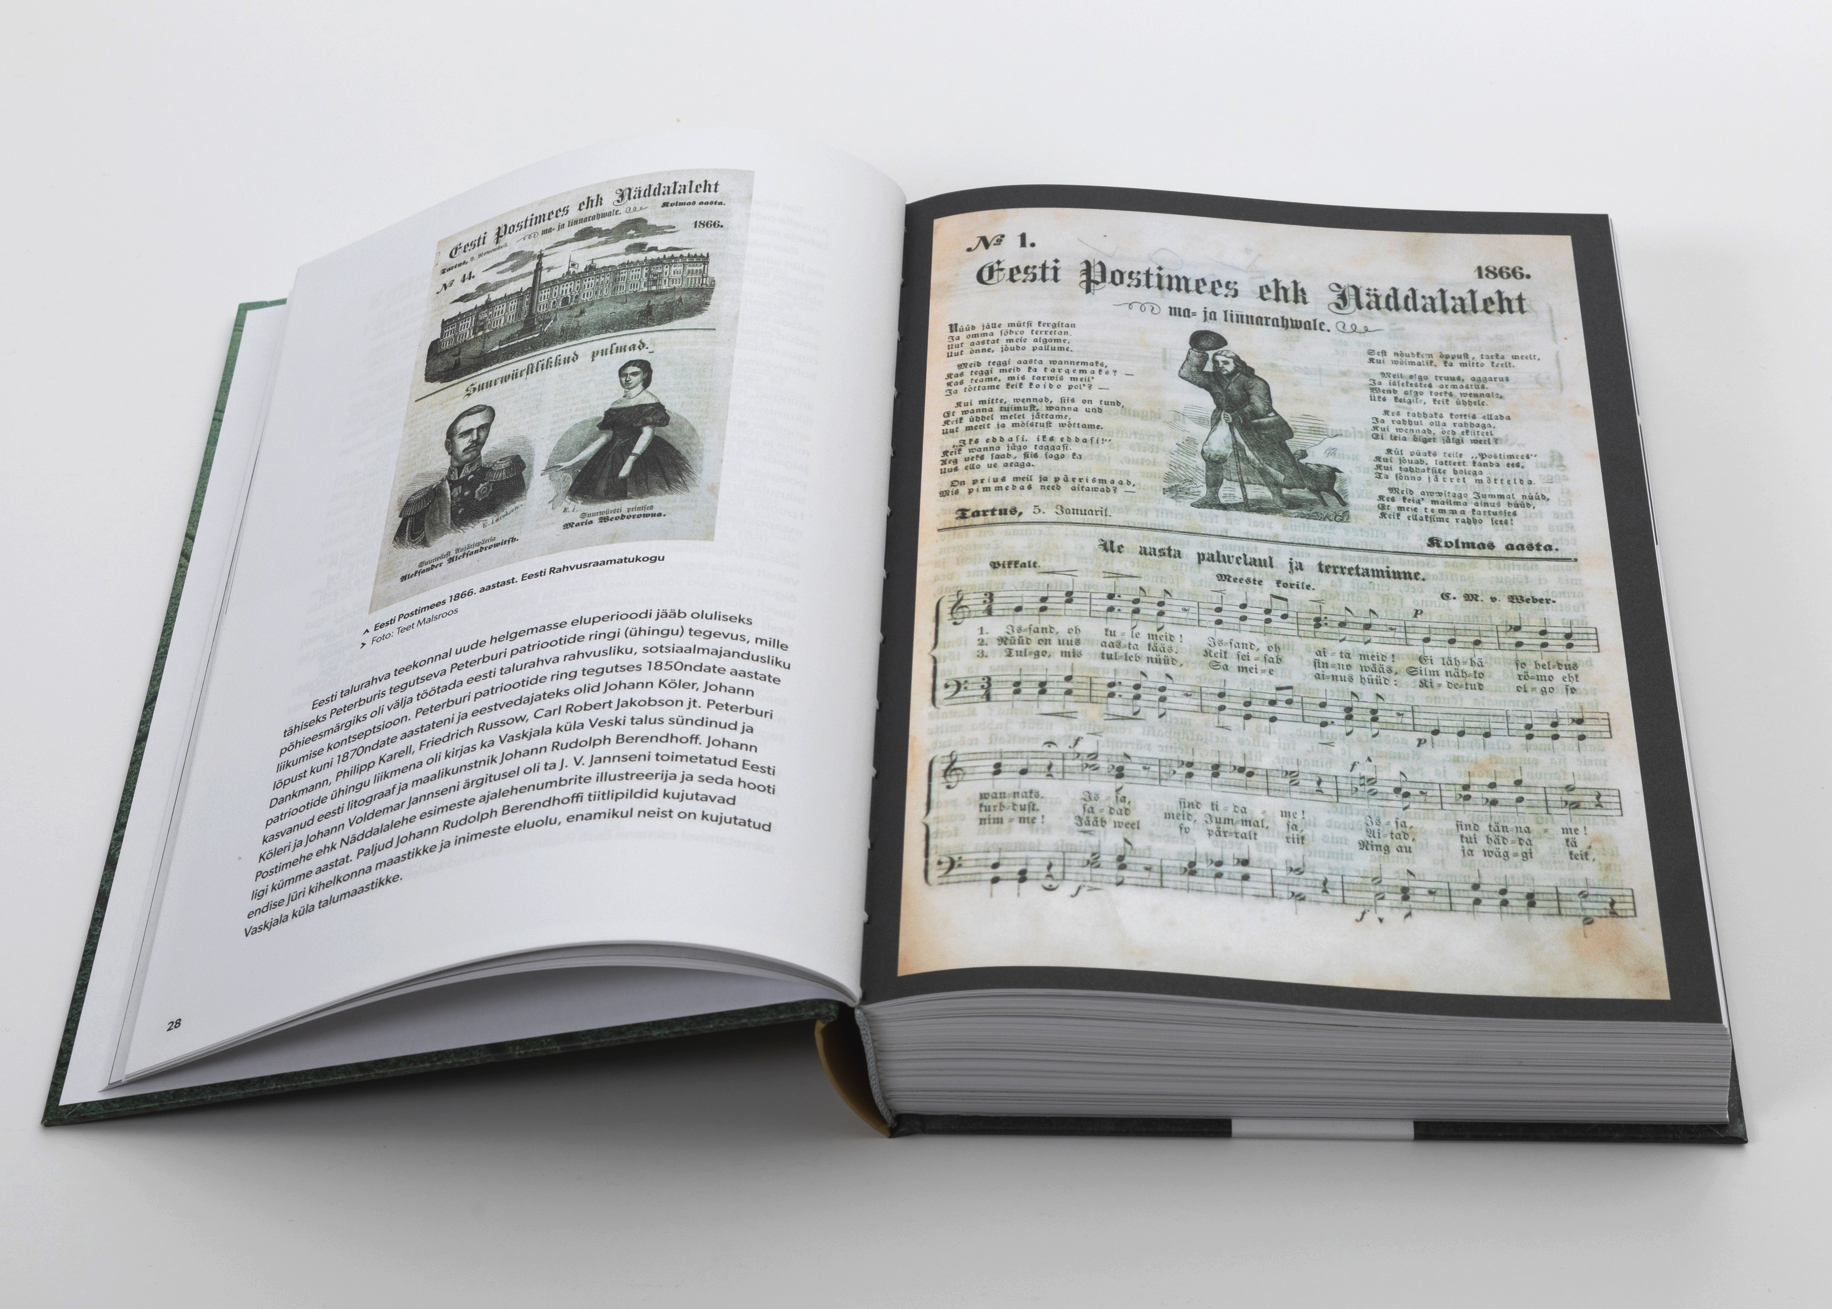 Eesti Postimees ehk Näddalaleht
ma- ja linnarahwale.
Kolmas aasta.
Tartus,
№ 44.
1866.
Suurwürstlikkud pulmad.
Suurwürst
Aleksander Aleksandrowitsh.
Suurwürsti printses
Maria Weodorowna.
Eesti Postimees 1866. aastast. Eesti Rahvusraamatukogu
Foto: Teet Malsroos
Eesti talurahva teekonnal uude helgemasse eluperioodi jääb oluliseks
tähiseks Peterburis tegutseva Peterburi patriootide ringi (ühingu) tegevus, mille
põhieesmärgiks oli välja töötada eesti talurahva rahvusliku, sotsiaalmajandusliku
liikumise kontseptsioon. Peterburi patriootide ring tegutses 1850ndate aastate
lõpust kuni 1870ndate aastateni ja eestvedajateks olid Johann Köler, Johann
Dankmann, Philipp Karell, Friedrich Russow, Carl Robert Jakobson jt. Peterburi
patriootide ühingu liikmena oli kirjas ka Vaskjala küla Veski talus sündinud ja
kasvanud eesti litograaf ja maalikunstnik Johann Rudolph Berendhoff. Johann
Köleri ja Johann Voldemar Jannseni ärgitusel oli ta J. V. Jannseni toimetatud Eesti
Postimehe ehk Näddalalehe esimeste ajalehenumbrite illustreerija ja seda hooti
ligi kümme aastat. Paljud Johann Rudolph Berendhoffi tiitlipildid kujutavad
endise Jüri kihelkonna maastikke ja inimeste eluolu, enamikul neist on kujutatud
Vaskjala küla talumaastikke.
28
№ 1.
1866.
Eesti Postimees ehk Näddalaleht
ma- ja linnarahwale.
Nüüd jälle mütsi kergitan
Ja omma sõbro terretan,
Uut aastat meie algame,
Uut õnne, jõudo pallume.
Meid teggi aasta wannemaks,
Kas teggi meid ka targemaks? —
Kas teame, mis tarwis meil'
Ja tõttame keik koido pol'? —
Kui mitte, wennad, siis on tund,
Et wanna tuimust, wanna und
Keik ühhel melel jättame,
Uut meelt ja mõistust wõttame.
„Iks eddasi, iks eddasi!“
Keik wanna jägo taggasi.
Arg ueks saab, siis sago ka
Uus ello ue aeaga.
On prius meil ja pärrismaad,
Mis pimmedas need aitawad? —
Sest nõudken õppust, tarka meelt,
Kui wõimalik, ka mitto keelt.
Meil olgo truus, aggarus
Ja issekestes armastus.
Wend olgo toeks wennale,
Üks keigile, keik ühhele.
Kes tahhaks korris ellada
Ja rahhul olla rahhaga,
Kui wennad, õed eksiteel
Ei leia õiget jälgi weel?
Küll püaks teile „Postimees“
Kui jõuab, latert kanda ees,
Kui tahhaksite holega
Ta sõnno järrel mõttelda.
Meid awwitago Jummal nüüd,
Kes keig' mailma ainus hüüd,
Et meie temma kartusses
Keik ellaksime rahho sees!
Tartus, 5. Januaril.
Kolmas aasta.
Ue aasta palwelaul ja terretaminne.
Pikkalt.
Meeste korile.
C. M. v. Weber.
p
1. Is-sand, oh tu-le meid! Is-sand, oh ai-ta meid! Ei läh-hä so hel-dus
2. Nüüd on uus aas-ta kääs. Keik sei-sab sin-no wääs, Silm näh-ko rö-mo ehk
3. Tul-go, mis tul-leb nüüd, Sa mei-e ai-nus hüüd: Ki-de-tud ol-go so
p
f
f
wan-naks. Is-sa, sind ti-da-me! Is-sa, sind tän-na-me!
kurb-dust. sa-dad meid, Jum-mal, ja, Ai-tad, kui häd-da kä
nim-me! Jääb weel so pär-ralt riik Ning au ja wäg-gi keik,
f
f